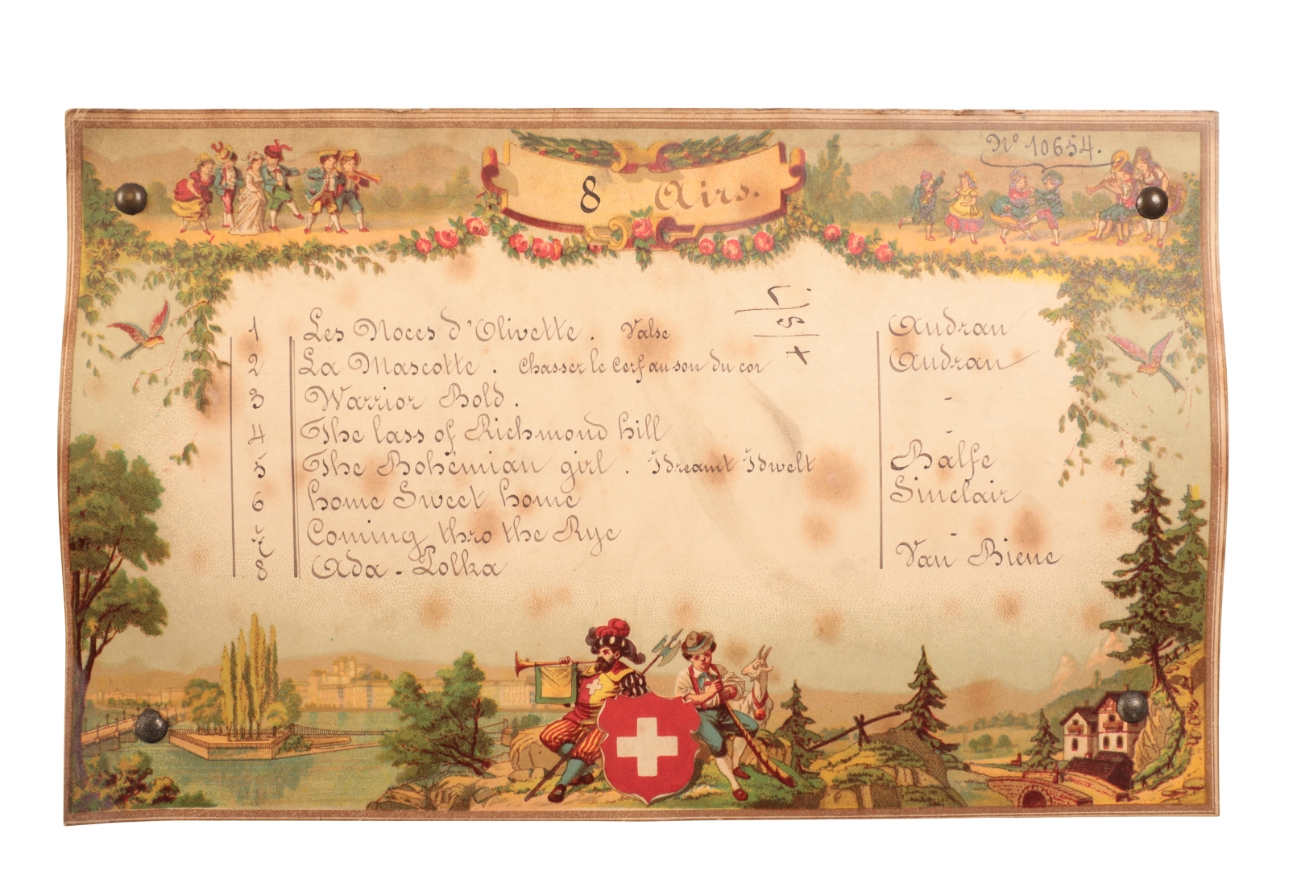 Nº 10654.
8 Airs.
1 Les Noces d'Olivette. Valse Audran
2 La Mascotte. Chasser le Cerf au son du cor Audran
3 Warrior Bold. -
4 The lass of Richmond hill -
5 The Bohémian girl. I dreamt I dwelt Balfe
6 home Sweet home Sinclair
7 Coming thro the Rye -
8 Ada-Polka Van Biene